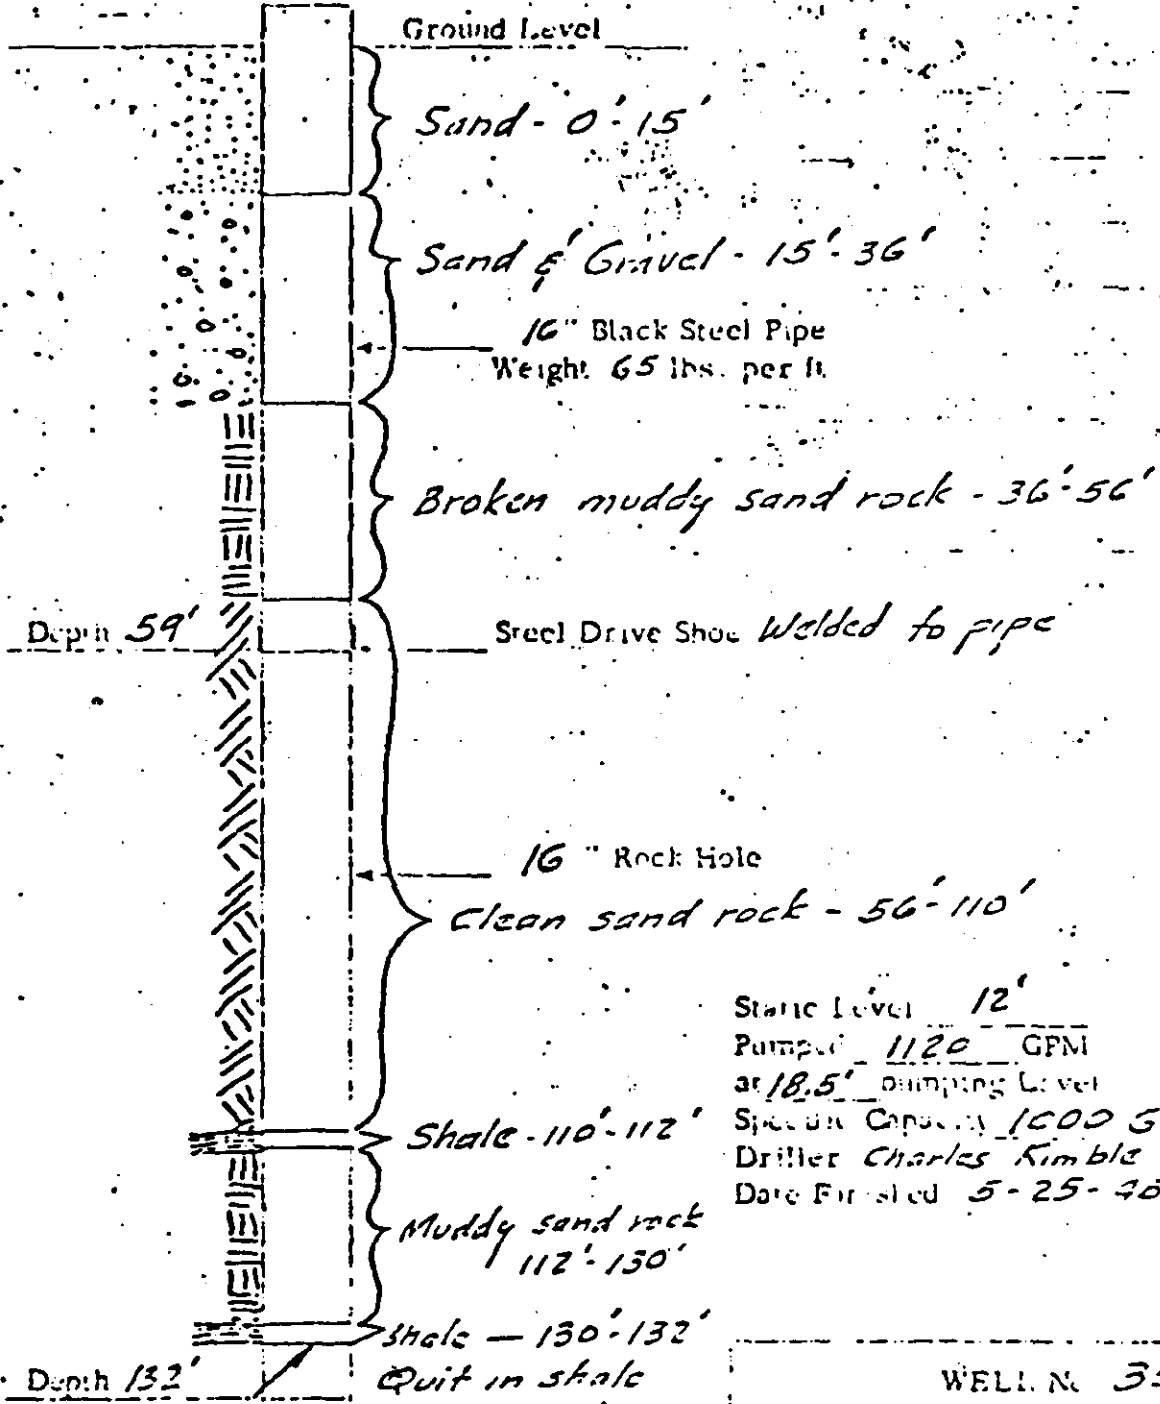 Ground Level
Sand - 0'-15'
Sand & Gravel - 15'-36'
16" Black Steel Pipe
Weight 65 lbs. per ft.
Broken muddy sand rock - 36'-56'
Depth 59'
Steel Drive Shoe Welded to pipe
16" Rock Hole
Clean sand rock - 56'-110'
Static Level 12'
Pumped 1120 GPM
at 18.5' pumping Level
Specific Capacity 1000 G
Driller Charles Kimble
Date Finished 5-25-
Shale - 110'-112'
Muddy sand rock
112'-130'
Shale — 130'-132'
Quit in shale
Depth 132'
WELL No